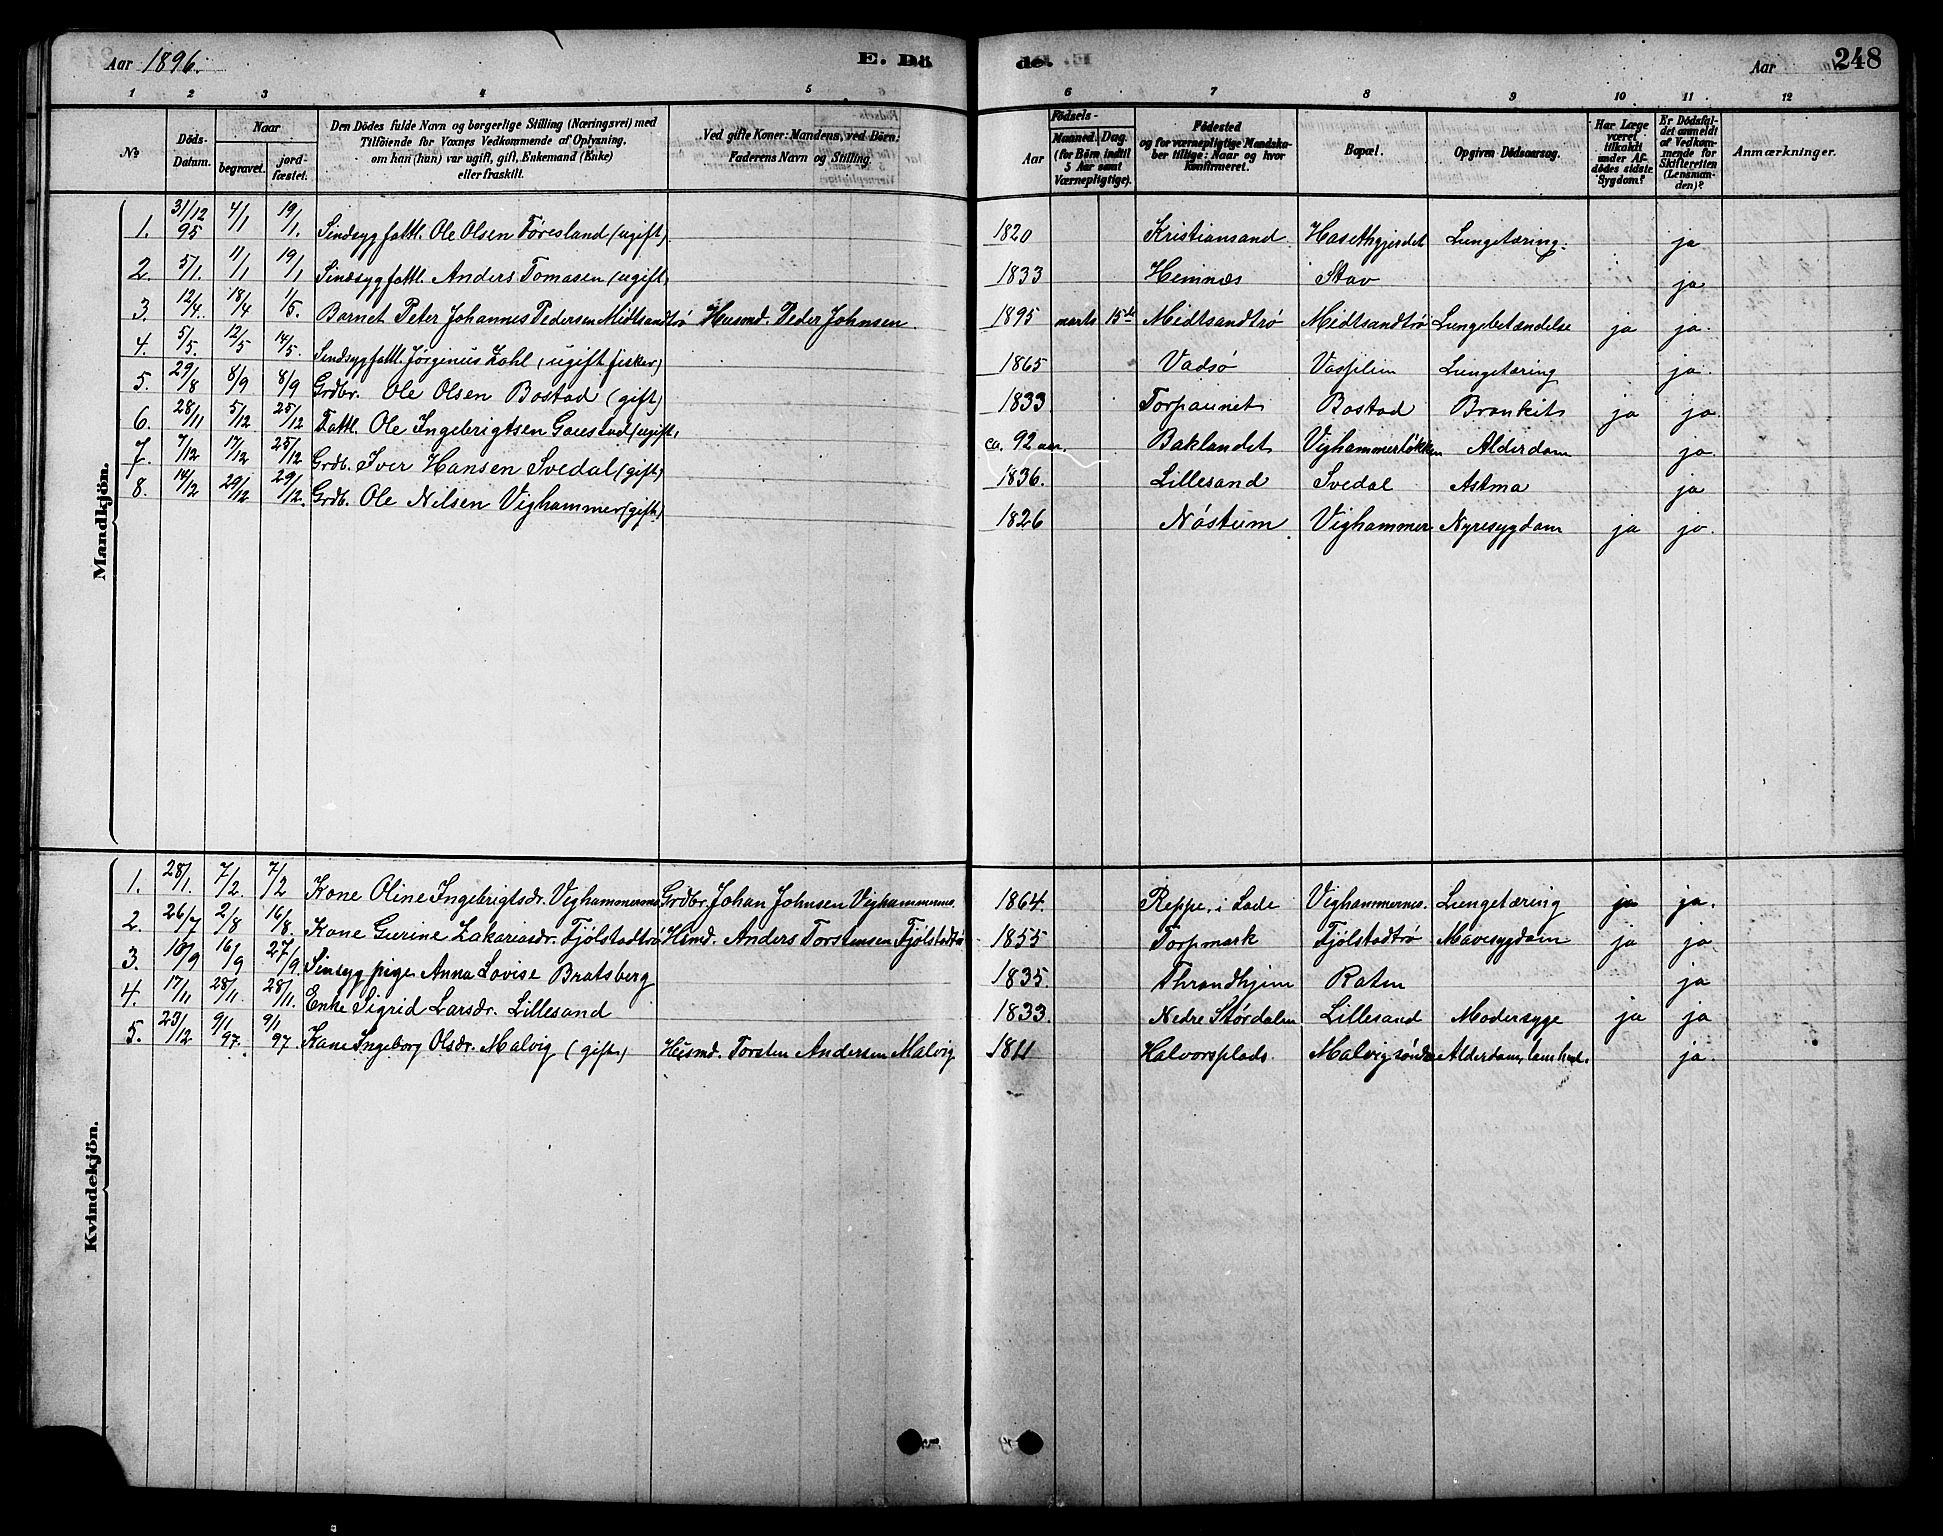 Aar 1896.
E. Dö
de.
Aar
248
1 2 3 4 5 6 7 8 9 10 11 12
№
Döds-Datum.
Naar
begravet.
jordfæstet.
Den Dödes fulde Navn og borgerlige Stilling (Næringsvei) med
Tilföiende for Voxnes Vedkommende af Oplysning,
om han (hun) var ugift, gift, Enkemand (Enke)
eller fraskilt.
Ved gifte Koner: Mandens, ved Börn:
Faderens Navn og Stilling.
Födsels-
Aar
Maaned.
Dag.
(for Börn indtil
5 Aar samt
Værnepligtige).
Födested
og for værnepligtige Mandska-
ber tillige: Naar og hvor
Konfirmeret.
Bopæl.
Opgiven Dödsaarsag.
Har Læge
været
tilkaldt
under Af-
dödes sidste
Sygdom?
Er Dödsfal-
det anmeldt
af Vedkom-
mende for
Skifteretten
(Lensman-
den)?
Anmærkninger.
Mandkjön.
1. 31/12 95 4/1 19/1. Sindsyg fattl. Ole Olsen Føresland (ugift) 1820 Kristiansand Hasethgjerdet Lungetæring. ja
2. 5/1. 11/1 19/1 Sindsyg fattl. Anders Tomasen (ugift) 1833 Hemnæs Stav ja
3. 12/4. 18/4 1/5. Barnet Peter Johannes Pedersen Midtsandtrø Husmd. Peder Johnsen. 1895 marts 15de Midtsandtrø Midtsandtrø Lungebetændelse ja ja.
4. 5/5. 12/5 14/5. Sindsyg fattl. Jørginus Zahl (ugift fisker) 1865 Vadsø Lungetæring ja.
5. 29/8 8/9 8/9 Grdbr. Ole Olsen Bostad (gift) 1833 Torpaunet Bostad Bronkit ja ja.
6. 28/11 5/12 25/12 Fattl. Ole Ingebrigtsen (ugift) ca. 92 aar. Baklandet Vighammerløkken Alderdom ja
7. 7/12 17/12 25/12 Grdb. Iver Hansen Svedal (gift) 1836. Lillesand Svedal Astma ja
8. 14/12 29/12 29/12. Grdb. Ole Nilsen Vighammer (gift) 1826 Nøstum Vighammer Nyresygdom ja ja.
Kvindekjön.
1. 28/1. 7/2. 7/2 Kone Oline Ingebrigtsdr. Vighammernes Grdbr. Johan Johnsen Vighammernes. 1864. Reppe, i Lade Vighammernes. Lungetæring ja ja.
2. 26/7 2/8 16/8. Kone Gurine Zakariasdr. Fjølstadtrø Hsmd. Anders Torstensen Fjølstadtrø 1855 Torpmark Fjølstadtrø Mavesygdom ja ja
3. 10/9 16/9 27/9. Sinsyg pige Anna Lovise Bratsberg 1835. Throndhjem Roten ja
4. 17/11 28/11. 28/11. Enke Sigrid Larsdr. Lillesand 1833. Nedre Størdalen Lillesand Modersyge ja ja
5. 23/12 9/1 97. 9/1 97. Kone Ingeborg Olsdr. Malvig (gift) Husmd. Torsten Andersen Malvig 1811 Halvorsplads. Malvig søndre Alderdom, ja.